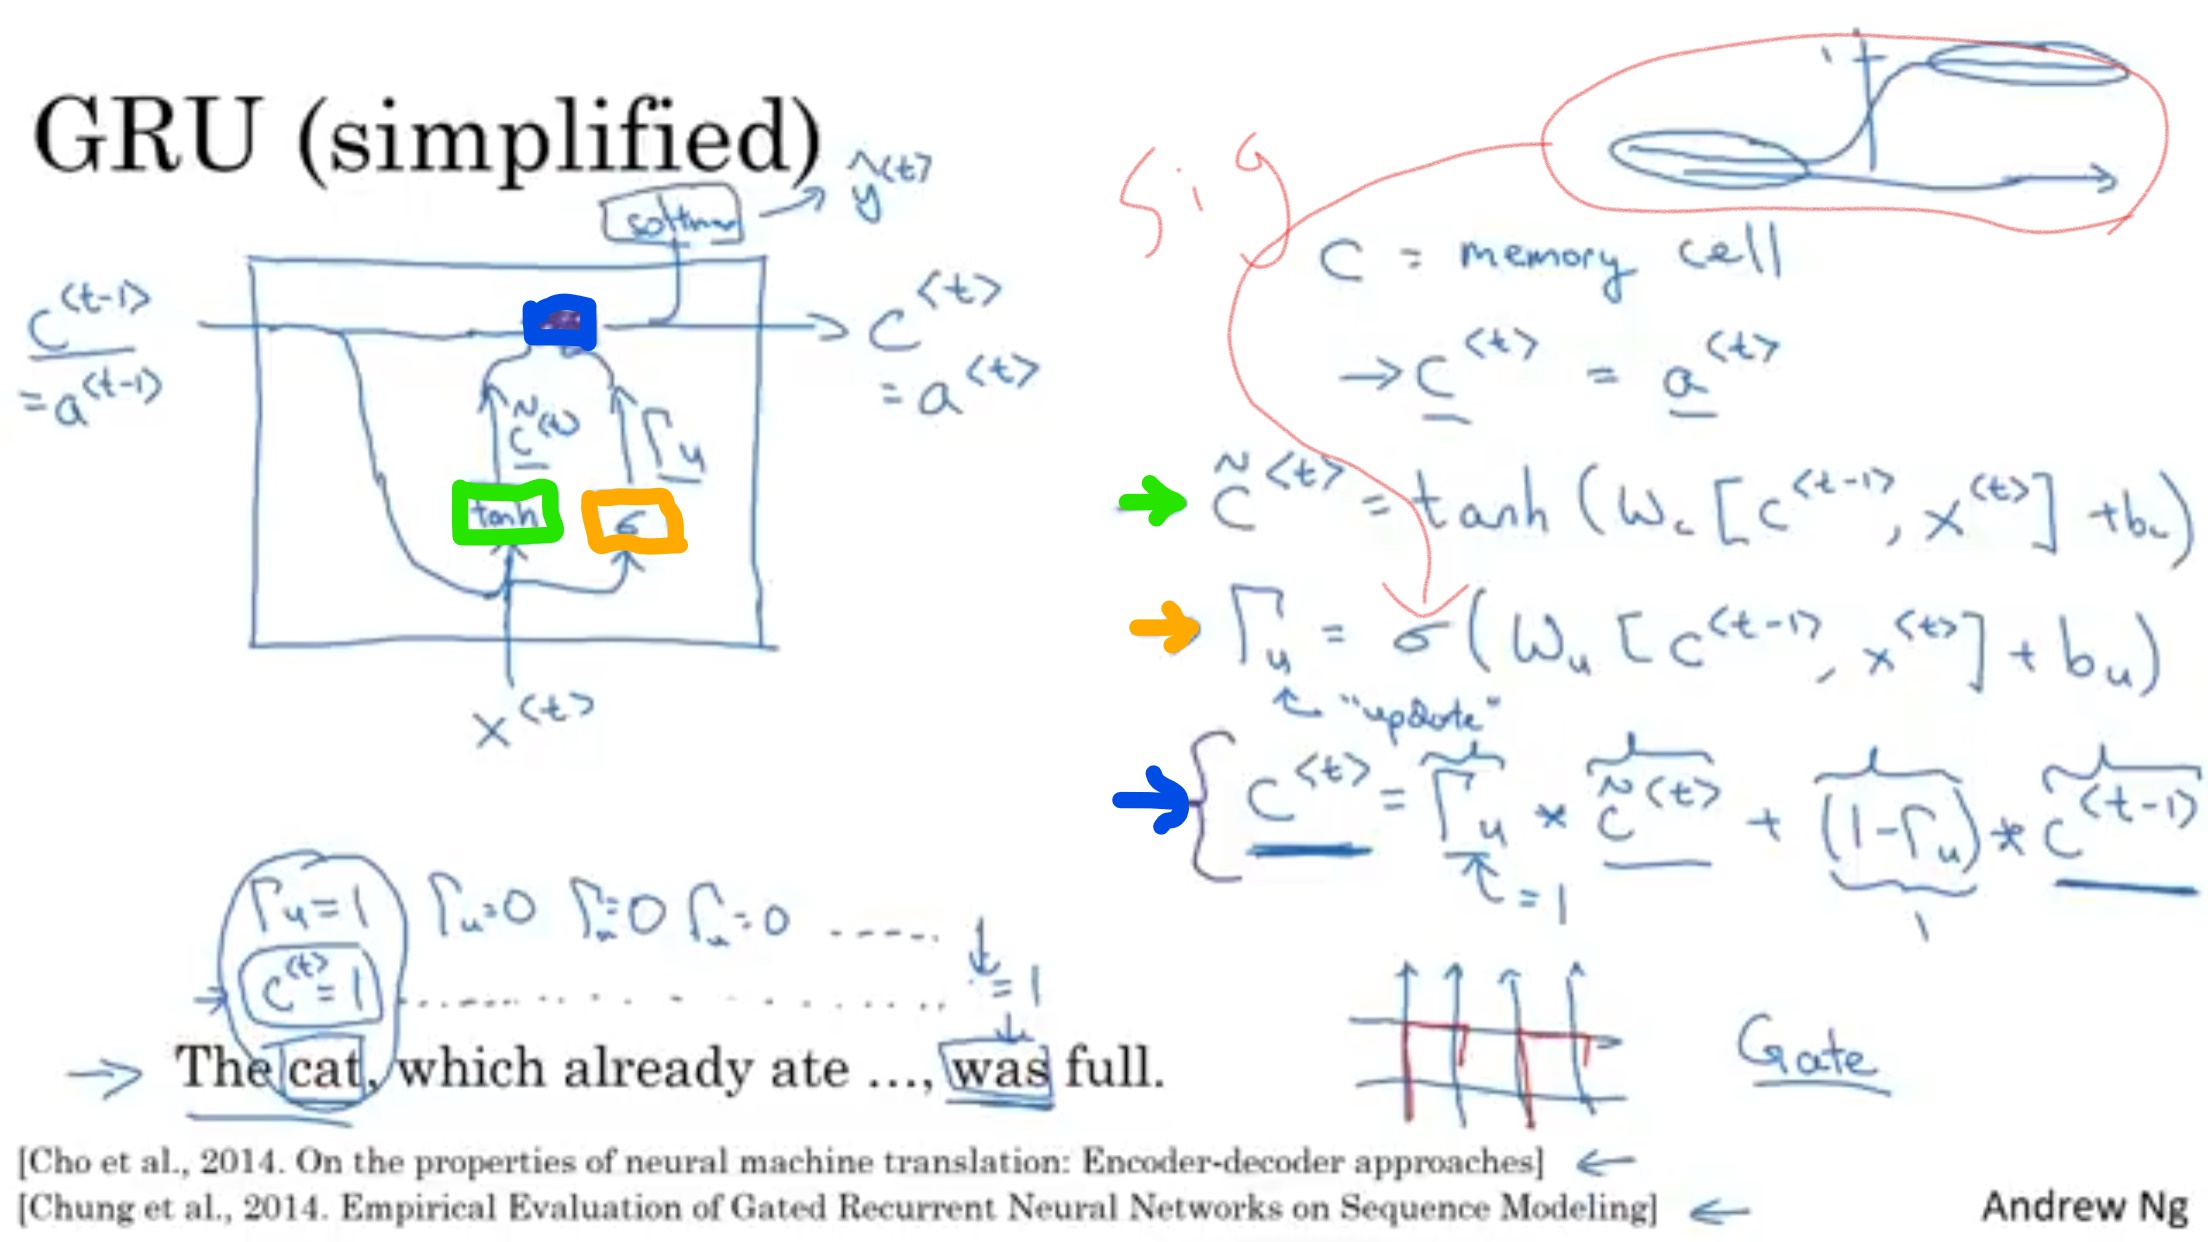 GRU (simplified)
softmax → ỹ<t>
Sig
1
C<t-1>
= a<t-1>
C<t>
= a<t>
c̃<t>
Γu
tanh
σ
x<t>
C = memory cell
→ C<t> = a<t>
C̃<t> = tanh (Wc [C<t-1>, x<t>] + bc)
Γu = σ(Wu [C<t-1>, x<t>] + bu)
"update"
C<t> = Γu * C̃<t> + (1-Γu) * C<t-1>
= 1
1
Γu=1 Γu=0 Γu=0 Γu=0 .....
C<t>=1 ..... = 1
→ The cat, which already ate ..., was full.
Gate
[Cho et al., 2014. On the properties of neural machine translation: Encoder-decoder approaches] ←
[Chung et al., 2014. Empirical Evaluation of Gated Recurrent Neural Networks on Sequence Modeling] ←
Andrew Ng